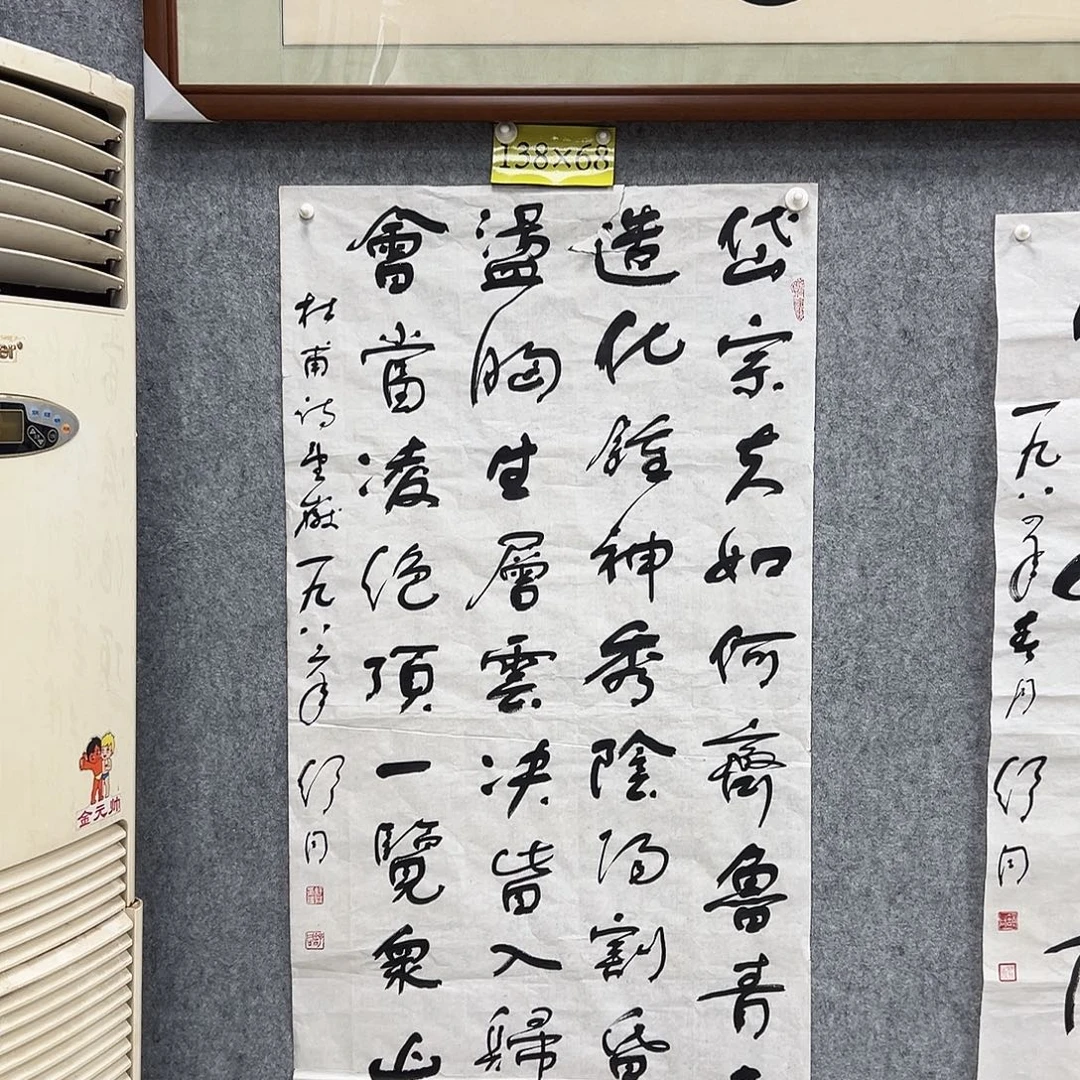 138×68
岱宗夫如何齊魯青
造化鍾神秀陰陽割昏
盪胸生層雲决眥入歸
會當凌絕頂一覽衆山
杜甫詩望嶽一九八六年 舒同
一九八四年春月 舒同
金元帅